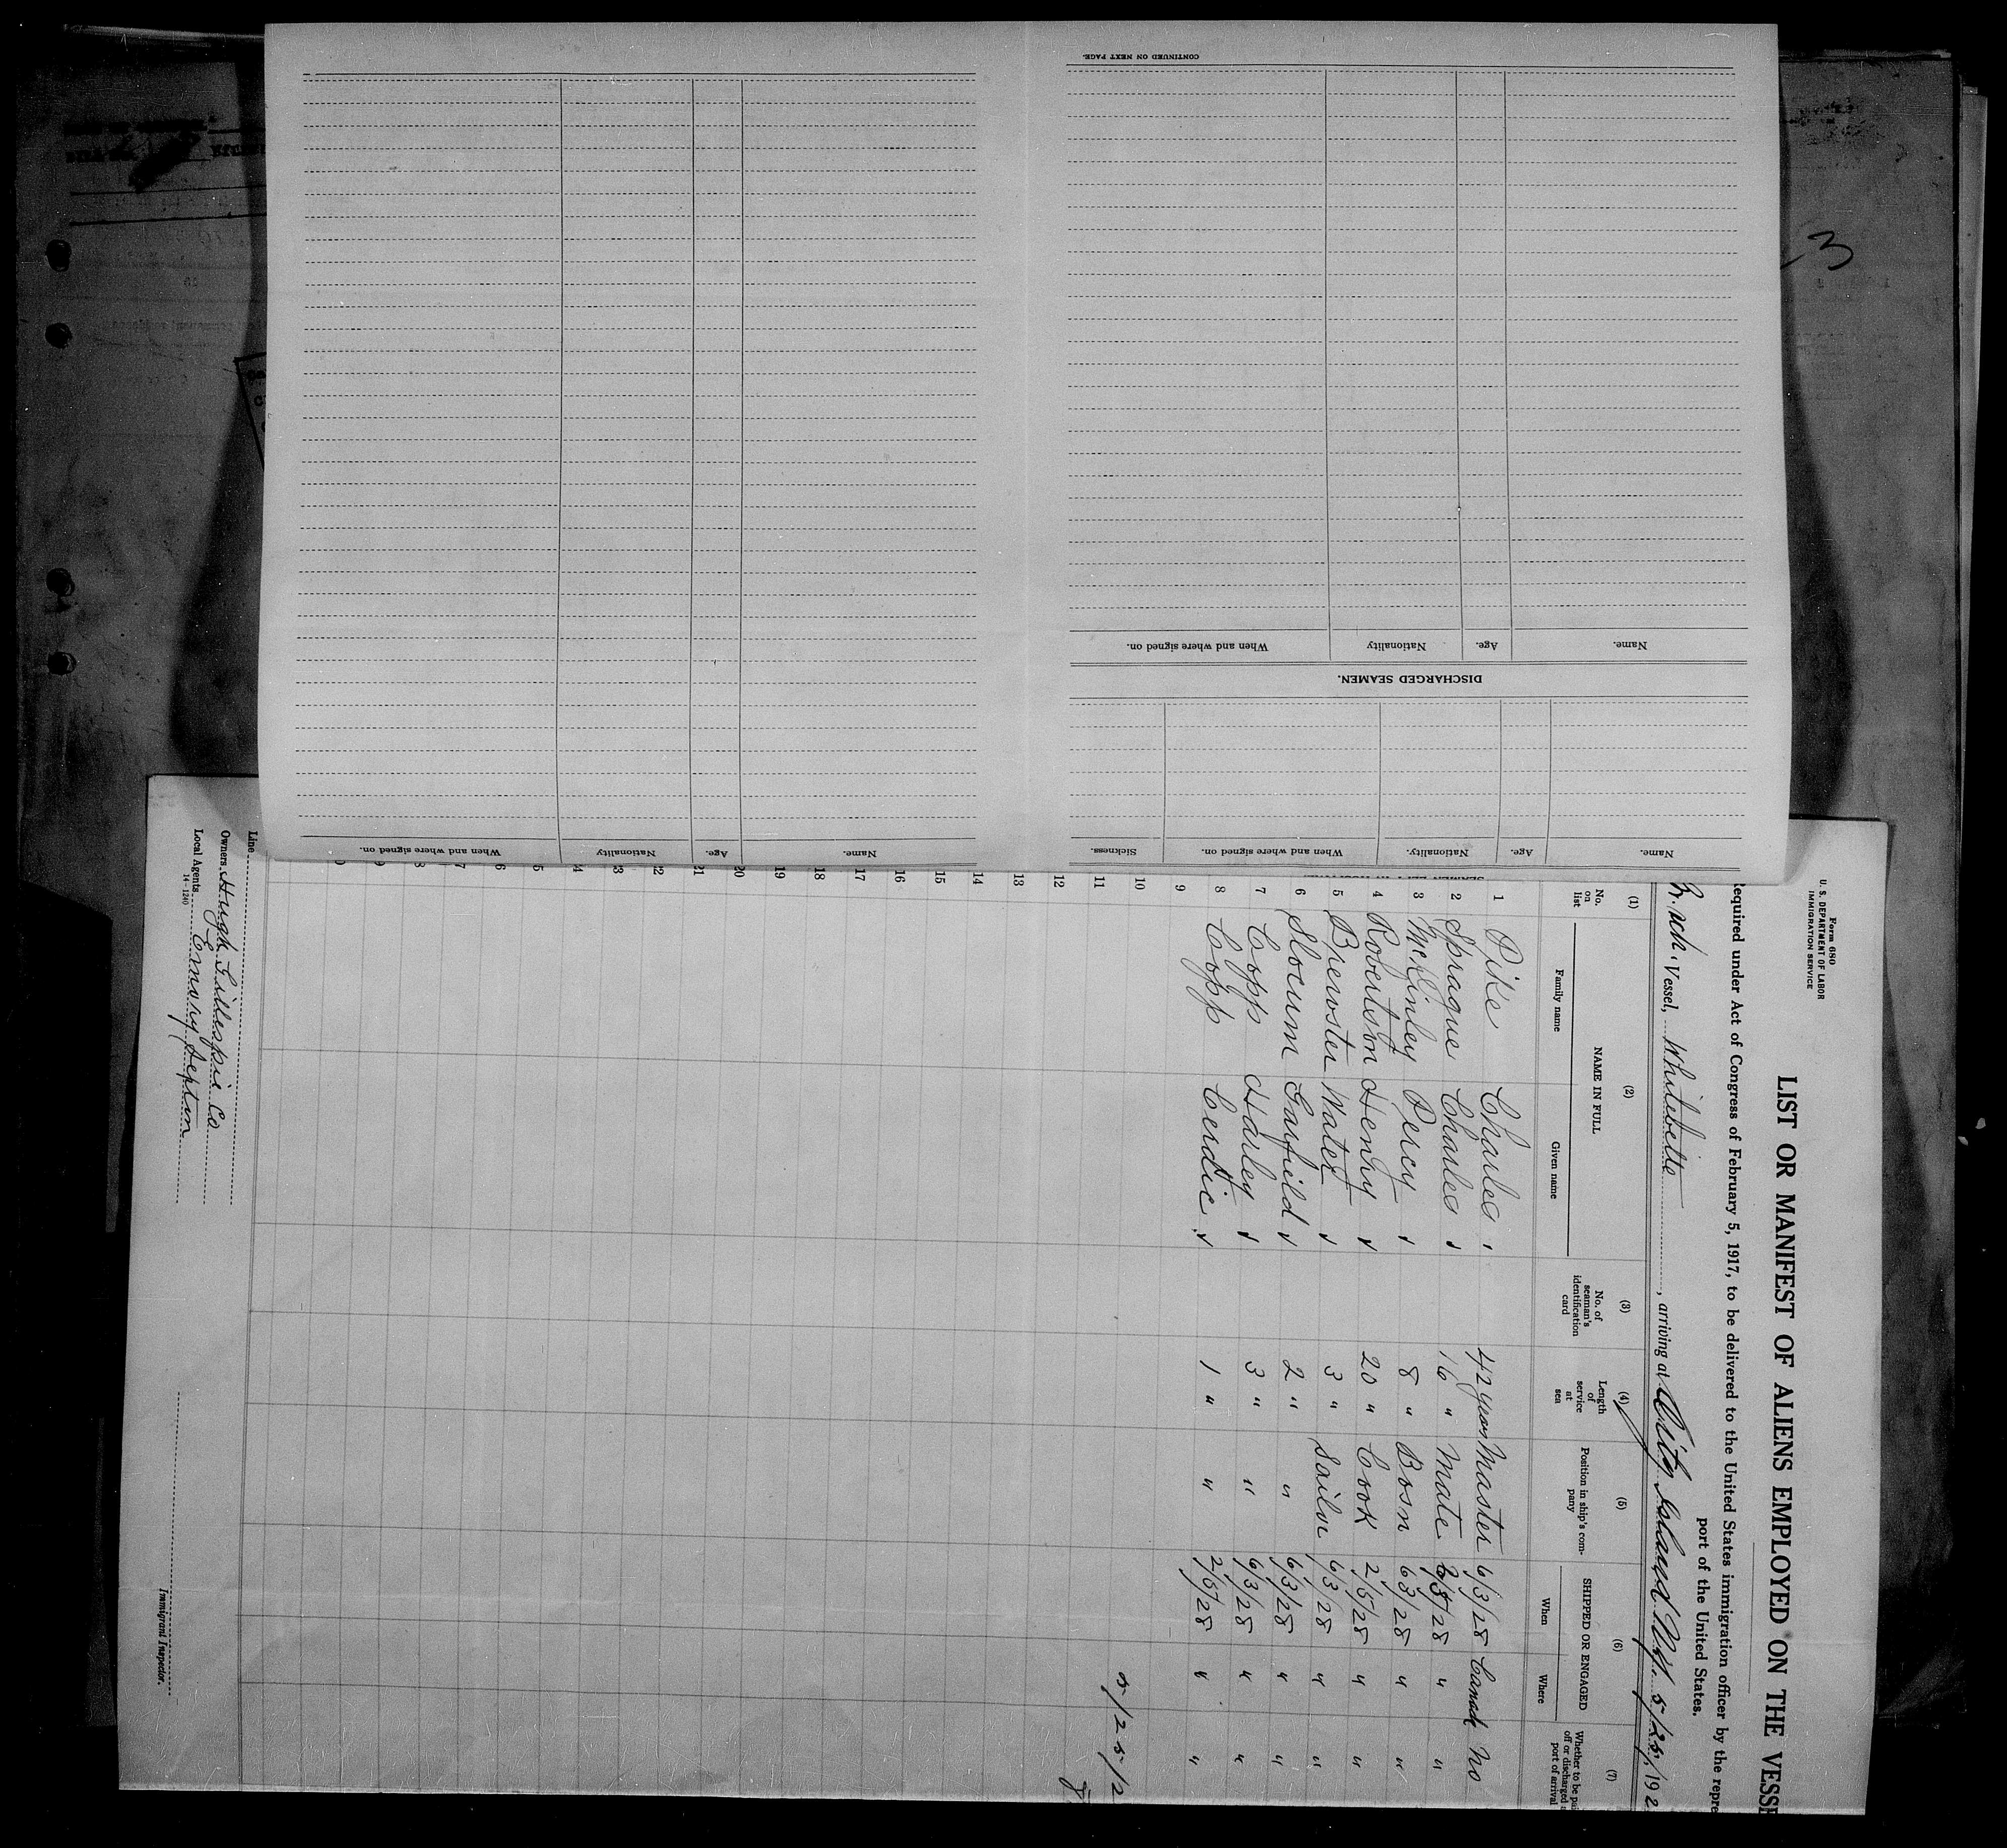 CONTINUED ON NEXT PAGE.
Name. Age. Nationality When and where signed on.
DISCHARGED SEAMEN.
Name. Age. Nationality. When and where signed on. Sickness.
Name. Age. Nationality When and where signed on.
3
Form 680
U. S. DEPARTMENT OF LABOR
IMMIGRATION SERVICE
LIST OR MANIFEST OF ALIENS EMPLOYED ON THE VESSE
Required under Act of Congress of February 5, 1917, to be delivered to the United States immigration officer by the repre
port of the United States.
Vessel, Whitebelle, arriving at City Island N.Y. 5/25/, 192
(1) (2) (3) (4) (5) (6) (7)
No. on list NAME IN FULL No. of seaman's identification card Length of service at sea Position in ship's company SHIPPED OR ENGAGED Whether to be pai off or discharged a port of arrival
Family name Given name When Where
1 Pike Charles 42 years Master 6/3/28 Canada No
2 Sprague Charles 16 " Mate /28 " "
3 McKinley Percy 8 " Bosn 6/3/28 " "
4 Robertson Henry 20 " Cook 2/5/28 " "
5 Brewster Water 3 " Sailor 6/3/28 " "
6 Slocum Garfield 2 " " 6/3/28 " "
7 Copp Harley 3 " " 6/3/28 " "
8 Copp Cerdic 1 " " 2/5/28 " "
9
10
11 5/25/2
12 8
13
14
15
16
17
18
19
20
21
22
23
24
5
6
7
8
9
0
Line
Owners Hugh Gillespie Co
Local Agents Emory Septon
14-1240
Immigrant Inspector.